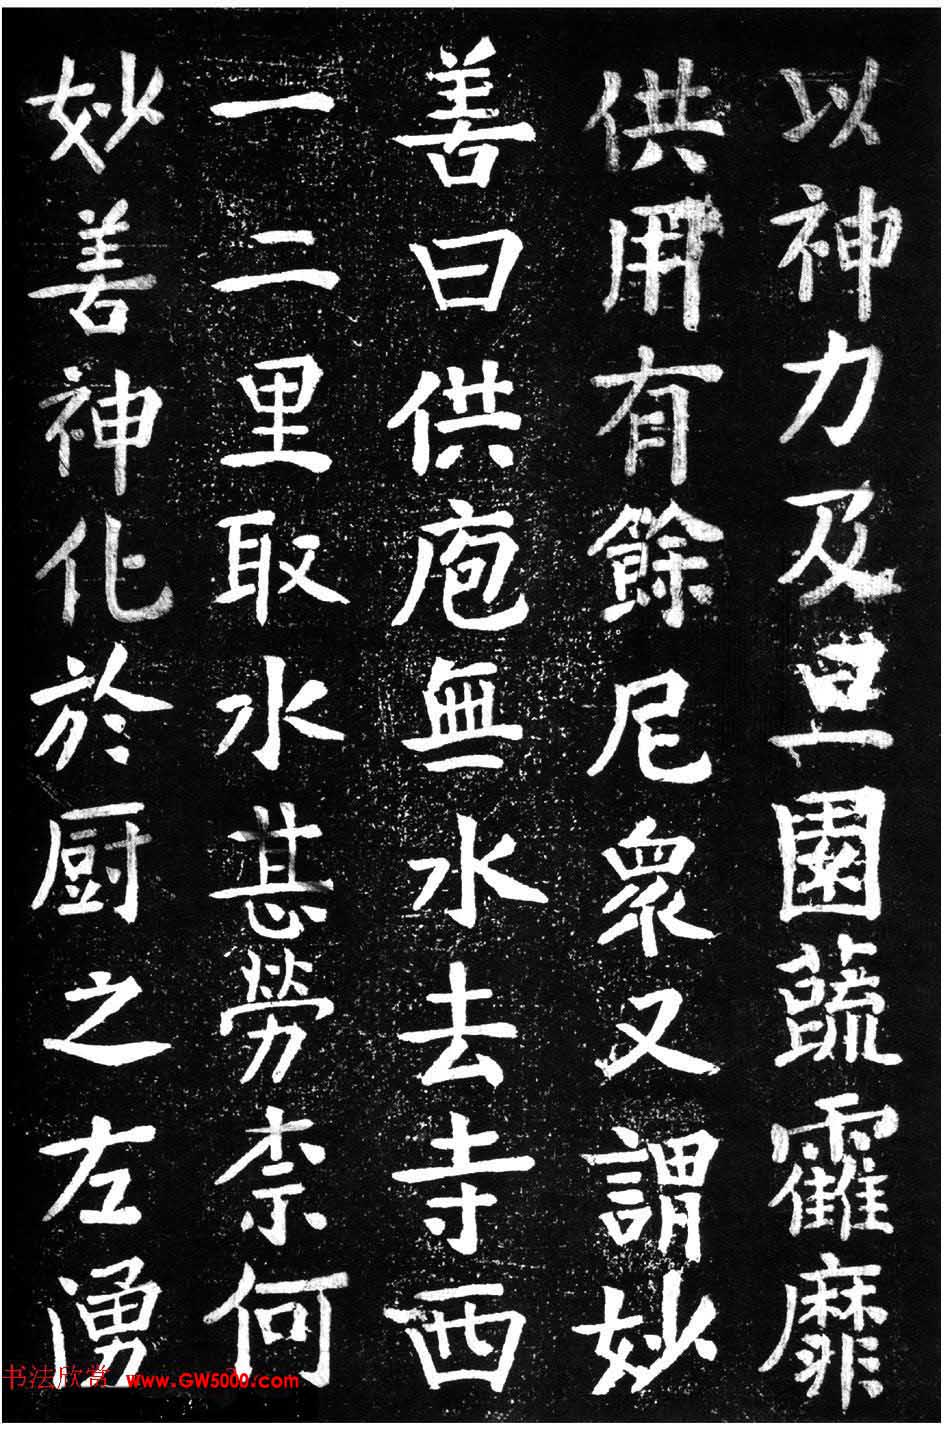 以神力及旦園蔬靃靡
供用有餘尼衆又謂妙
善曰供庖無水去寺西
一二里取水甚勞柰何
妙善神化於厨之左湧
书法欣赏 www.GW5000.com